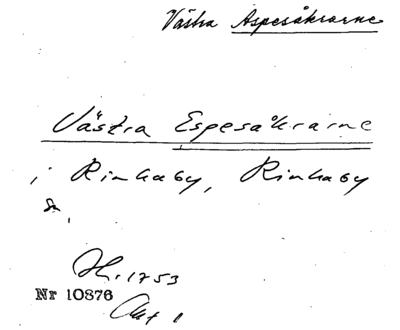 Västra Aspesåkrarne
Västra Espesåkrarne
i Rinkaby, Rinkaby
sn.
Hr. 1753
Nr 10876
Akt 1